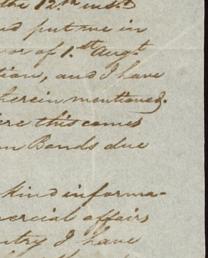 the 12th inst.
and put me in
vor of 1.st Augt
tion, and I have
herein mentioned.
ere this comes
on Bonds due
kind informa-
ercial affairs
untry I have